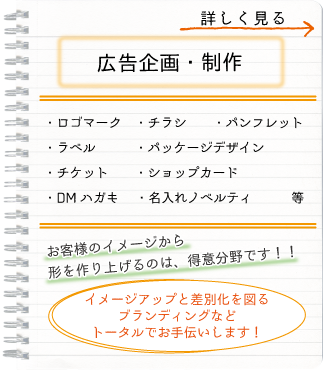 詳しく見る
広告企画・制作
・ロゴマーク ・チラシ ・パンフレット
・ラベル ・パッケージデザイン
・チケット ・ショップカード
・DMハガキ ・名入れノベルティ 等
お客様のイメージから
形を作り上げるのは、得意分野です！！
イメージアップと差別化を図る
ブランディングなど
トータルでお手伝いします！